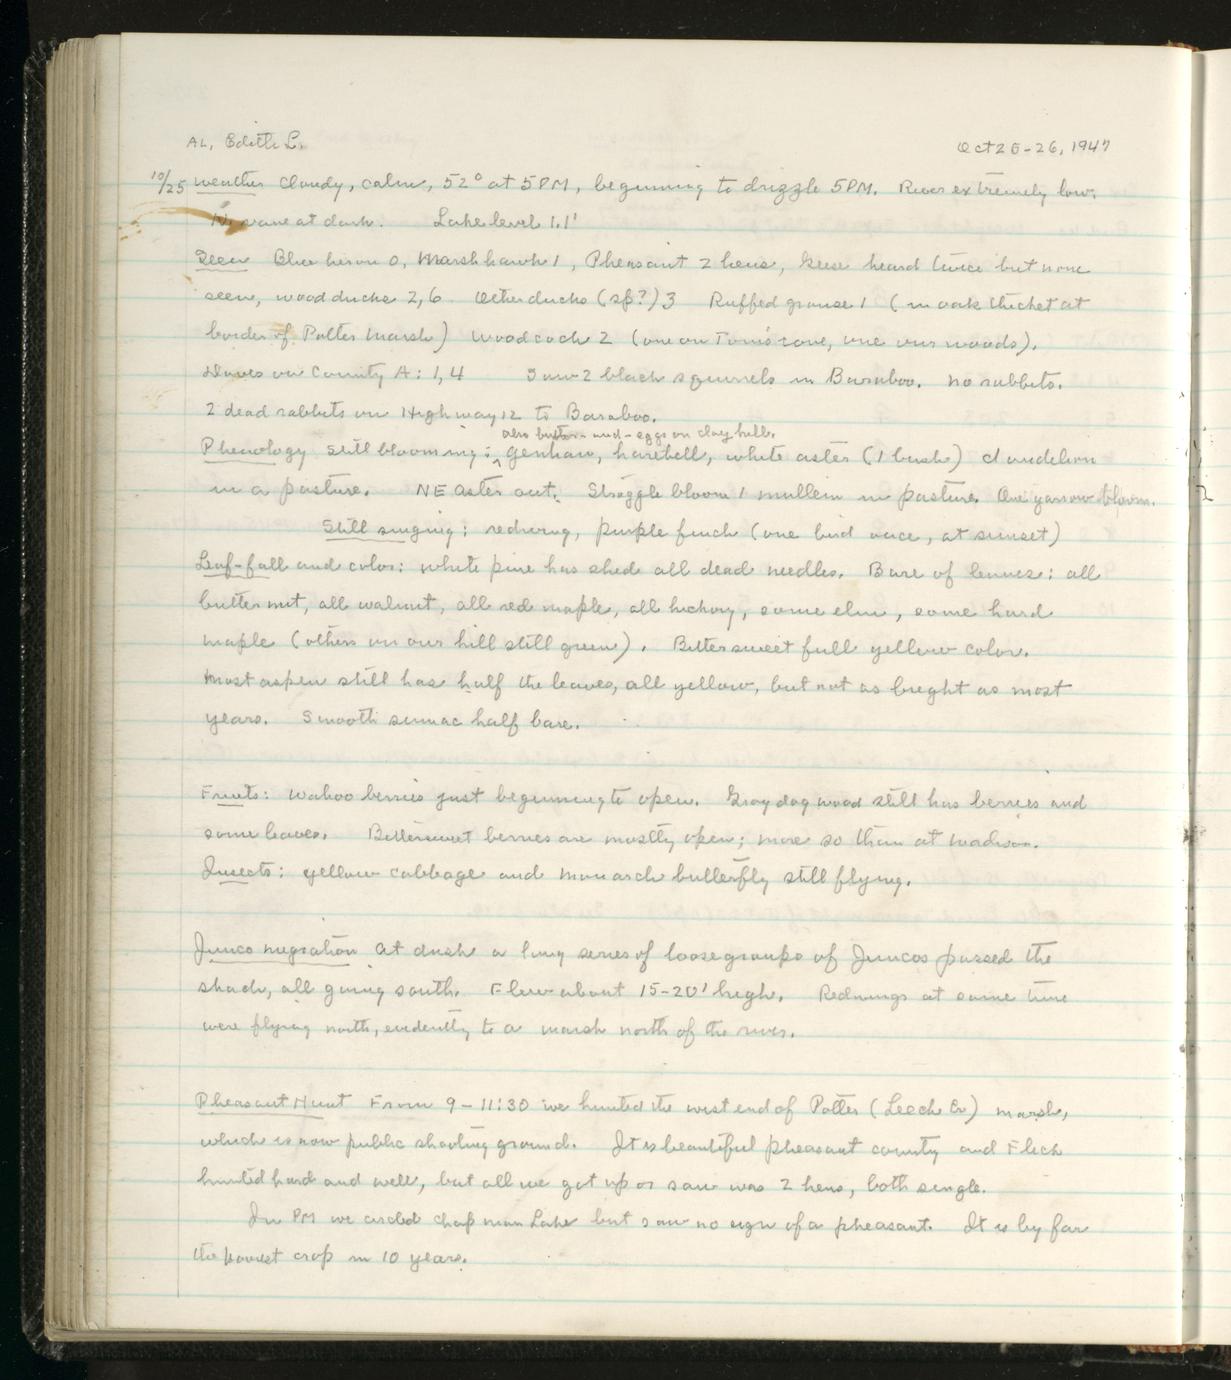 AL, Edith L.
Oct 25-26, 1947
10/25 Weather Cloudy, calm, 52° at 5PM, beginning to drizzle 5PM. River extremely low.
at dark. Lake level 1.1'
Seen Blue heron 0, Marsh hawk 1, Pheasant 2 hens, Geese heard twice but none
seen, wood ducks 2, 6 Other ducks (sp?) 3 Ruffed grouse 1 (in oak thicket at
border of Potter Marsh) Woodcock 2 (one on Tom's cove, one our woods).
Doves on County A: 1, 4 Saw 2 black squirrels in Baraboo. No rabbits.
2 dead rabbits on Highway 12 to Baraboo.
also butter-and-eggs on clay hill.
Phenology Still blooming: gentian, harebell, white aster (1 bush) dandelion
in a pasture. NE aster out. Straggle bloom 1 mullein in pasture. One yarrow bloom.
Still singing: redwing, purple finch (one bird once, at sunset)
Leaf-fall and color: white pine has shed all dead needles. Bare of leaves: all
butternut, all walnut, all red maple, all hickory, some elm, some hard
maple (others on our hill still green). Bittersweet full yellow color.
Most aspen still has half the leaves, all yellow, but not as bright as most
years. Smooth sumac half bare.
Fruits: Wahoo berries just beginning to open. Gray dogwood still has berries and
some leaves. Bittersweet berries are mostly open; more so than at Madison.
Insects: yellow cabbage and monarch butterfly still flying.
Junco migration At dusk a long series of loose groups of Juncos passed the
shack, all going south. Flew about 15-20' high. Redwings at same time
were flying north, evidently to a marsh north of the river.
Pheasant Hunt From 9-11:30 we hunted the west end of Potter (Leech Cr) marsh,
which is now public shooting ground. It is beautiful pheasant county and Flick
hunted hard and well, but all we got up or saw was 2 hens, both single.
In PM we circled Chapman Lake but saw no sign of a pheasant. It is by far
the poorest crop in 10 years.